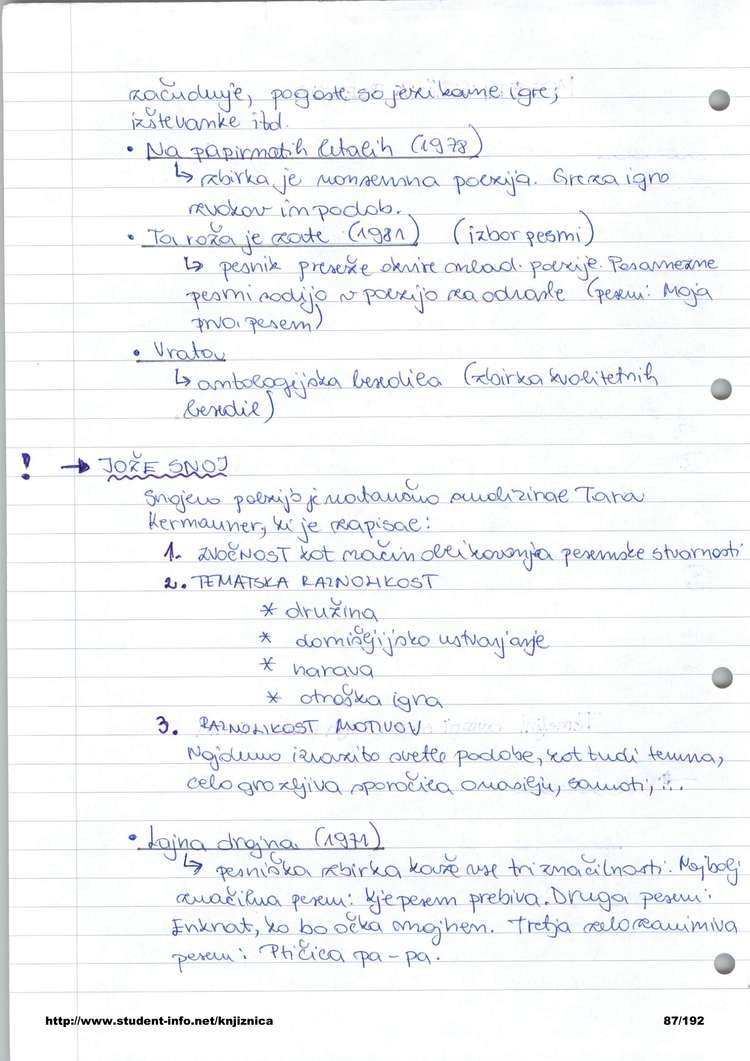 začuduje, pogoste so jezikovne igre,
izštevanke itd.
• Na papirnatih letalih (1978)
↳ zbirka je nonsensna poezija. Gre za igro
zvokov in podob.
• Ta roža je zate (1981) (izbor pesmi)
↳ pesnik preseže okvire mlad. poezije. Posamezne
pesmi sodijo v poezijo za odrasle (pesem: Moja
prva pesem)
• Vrata
↳ antologijska besedila (zbirka kvalitetnih
besedil)
! → JOŽE SNOJ
Snojevo poezijo je natančno analizirae Tara
Kermauner, ki je zapisae:
1. ZVOČNOST kot način oblikovanja pesemske stvarnosti
2. TEMATSKA RAZNOLIKOST
* družina
* domišljijsko ustvarjanje
* narava
* otroška igra
3. RAZNOLIKOST MOTIVOV
Najdemo izrazito svetle podobe, kot tudi temna,
celo grozljiva sporočila o nasilju, samoti, ...
• Lajna drajna (1971)
↳ pesniška zbirka kaže vse tri značilnosti. Najbolj
značilna pesem: Kje pesem prebiva. Druga pesem:
Enkrat, ko bo očka majhen. Tretja zelo zanimiva
pesem: Ptičica pa-pa.
http://www.student-info.net/knjiznica 87/192